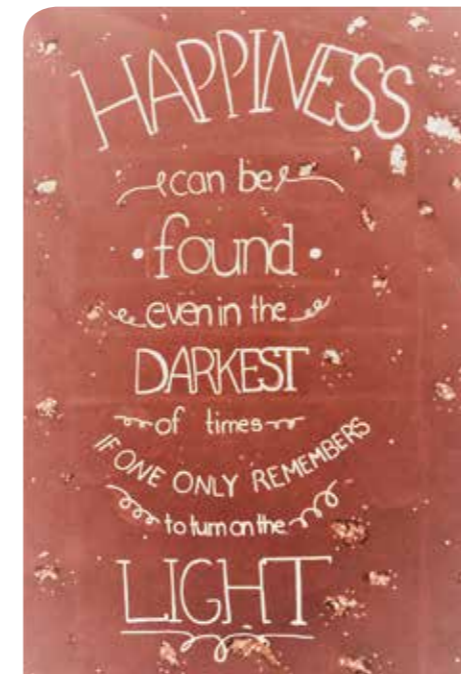 HAPPINESS
can be
found
even in the
DARKEST
of times
IF ONE ONLY REMEMBERS
to turn on the
LIGHT